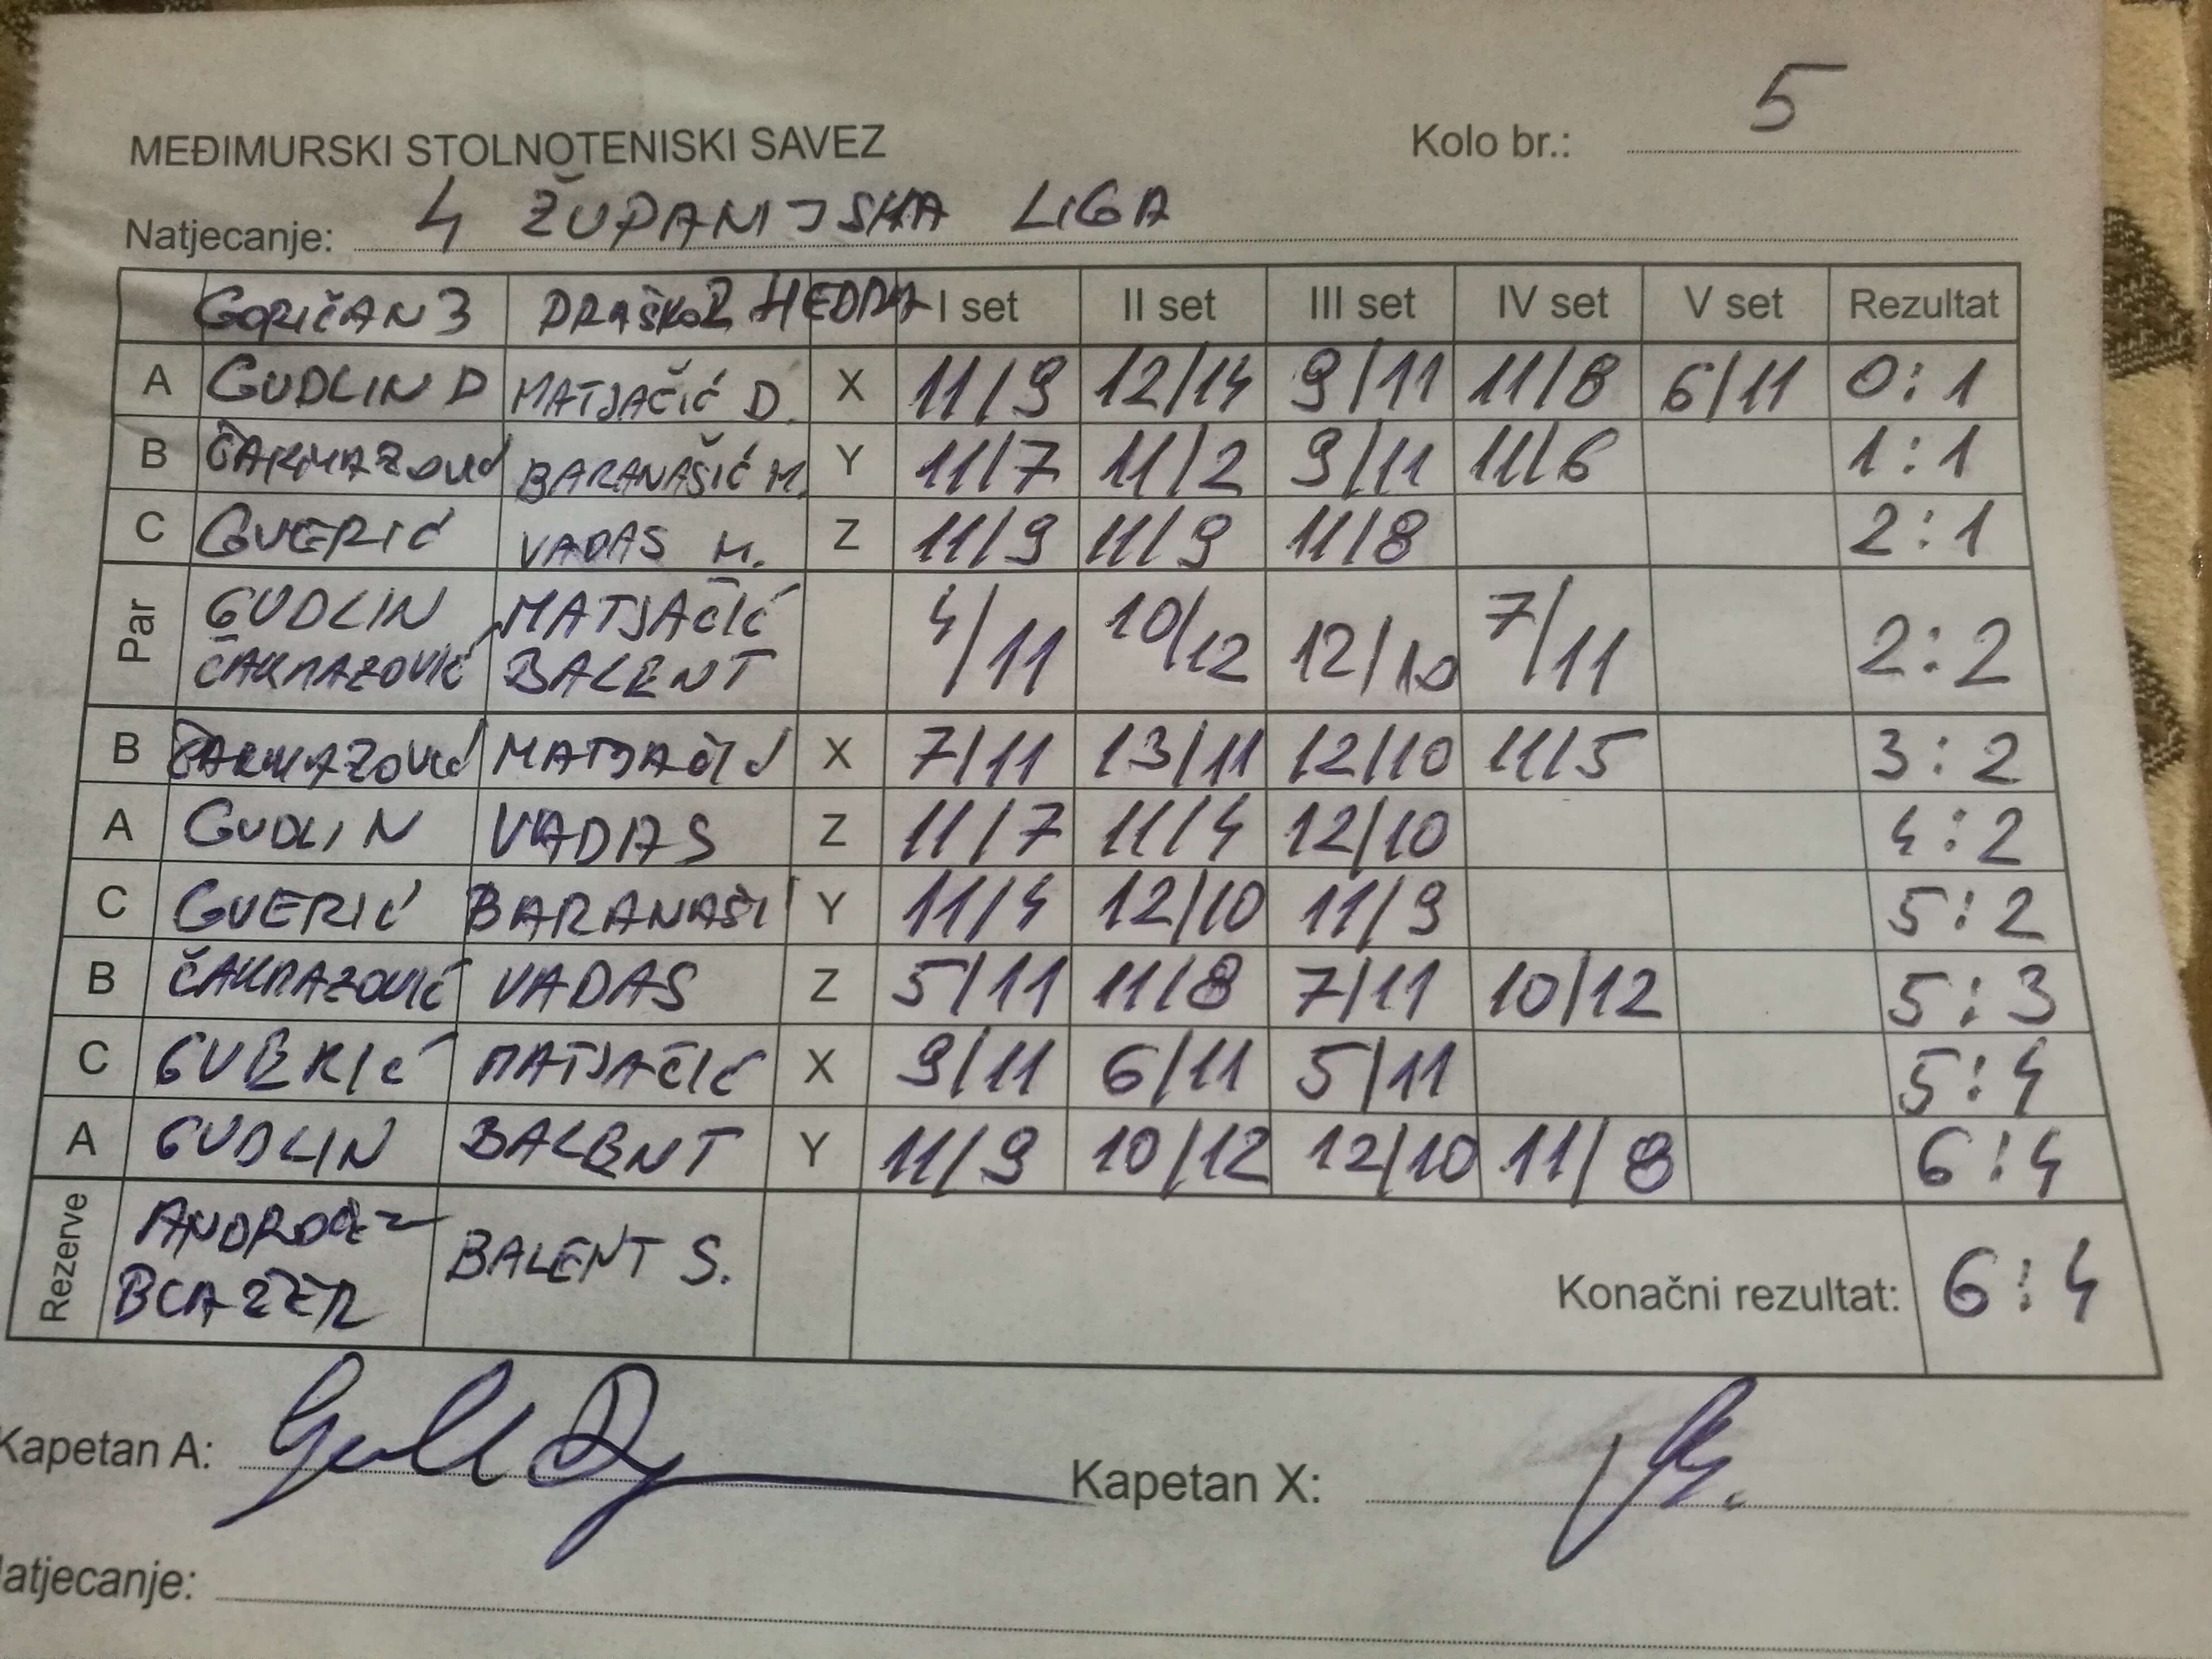 MEĐIMURSKI STOLNOTENISKI SAVEZ Kolo br.: 5
Natjecanje: 4 ŽUPANIJSKA LIGA
GORIČAN 3 DRAŠKOR HEDRA I set II set III set IV set V set Rezultat
A GUDLIN D MATJAČIĆ D. X 11/9 12/14 9/11 11/8 6/11 0:1
B ČAKMAZOVIĆ BARANAŠIĆ M. Y 11/7 11/2 9/11 11/6 1:1
C GVERIĆ VADAS M. Z 11/9 11/9 11/8 2:1
Par GUDLIN MATJAČIĆ 4/11 10/12 12/10 7/11 2:2
ČAKMAZOVIĆ BALENT
B ČAKMAZOVIĆ MATJAČIĆ X 7/11 13/11 12/10 11/5 3:2
A GUDLIN VADAS Z 11/7 11/4 12/10 4:2
C GVERIĆ BARANAŠI Y 11/4 12/10 11/9 5:2
B ČAKMAZOVIĆ VADAS Z 5/11 11/8 7/11 10/12 5:3
C GVERIĆ MATJAČIĆ X 9/11 6/11 5/11 5:4
A GUDLIN BALENT Y 11/9 10/12 12/10 11/8 6:4
Rezerve BALENT S. Konačni rezultat: 6:4
Kapetan A: Kapetan X:
atjecanje: